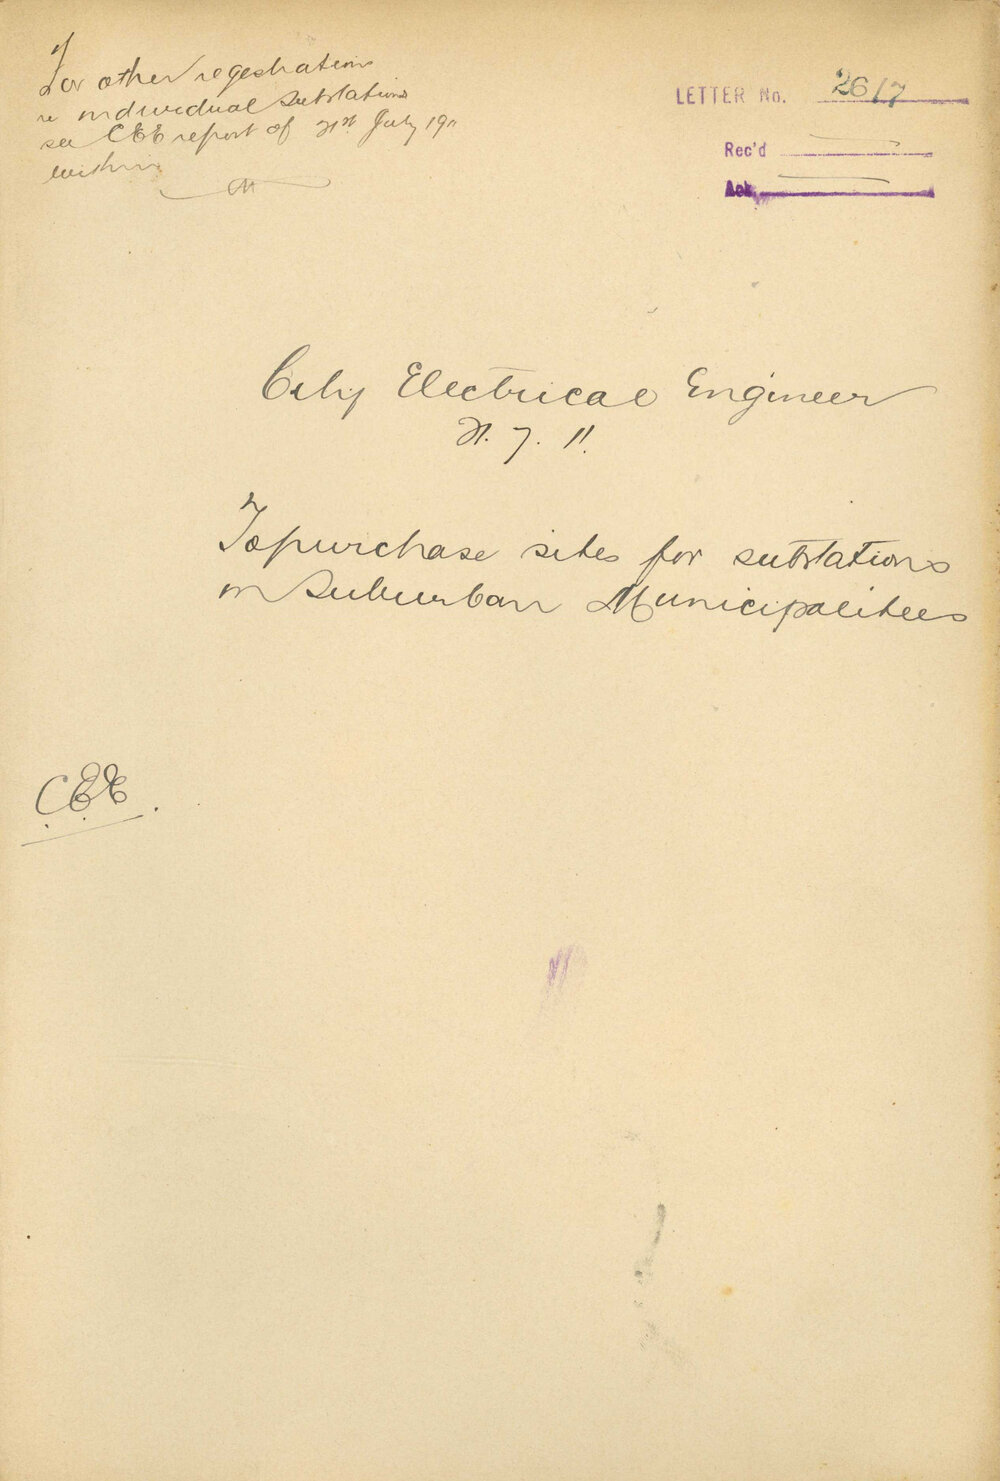 For other registrations
re individual Substations
see CEE report of 21st July 1911
within
LETTER No. 2617
Rec'd
Ack
City Electrical Engineer
21. 7. 11.
To purchase sites for substations
in Suburban Municipalities
CEE.